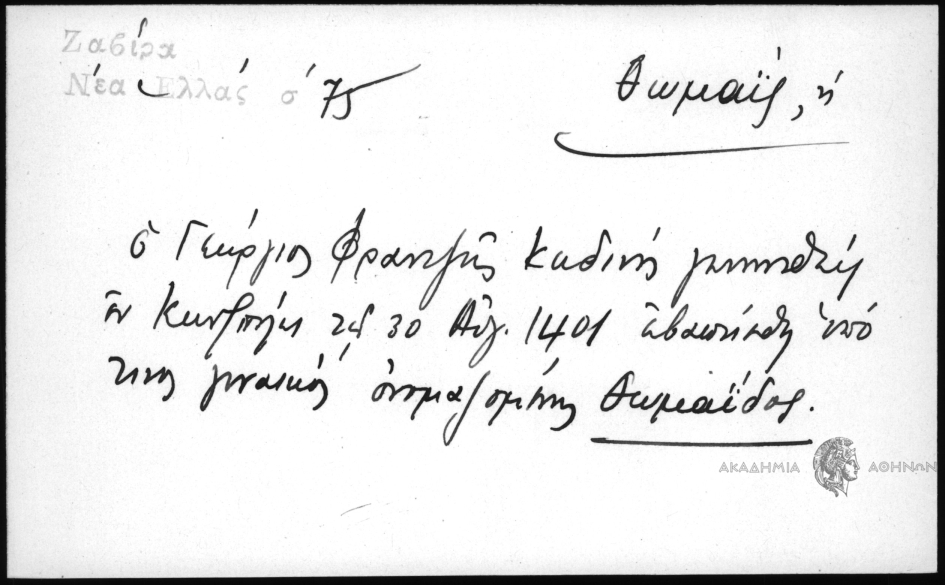 Ζαβίρα
Νέα Ελλάς σ 75
Θωμαΐς, ἡ
ὁ Γεώργιος Φραντζῆς γεννηθείς
ἐν Κων/πόλει τῇ 30 Αὐγ. 1401 ἐβαπτίσθη ὑπό
τινος γυναικός ὀνομαζομένης Θωμαΐδος.
ΑΚΑΔΗΜΙΑ ΑΘΗΝΩΝ